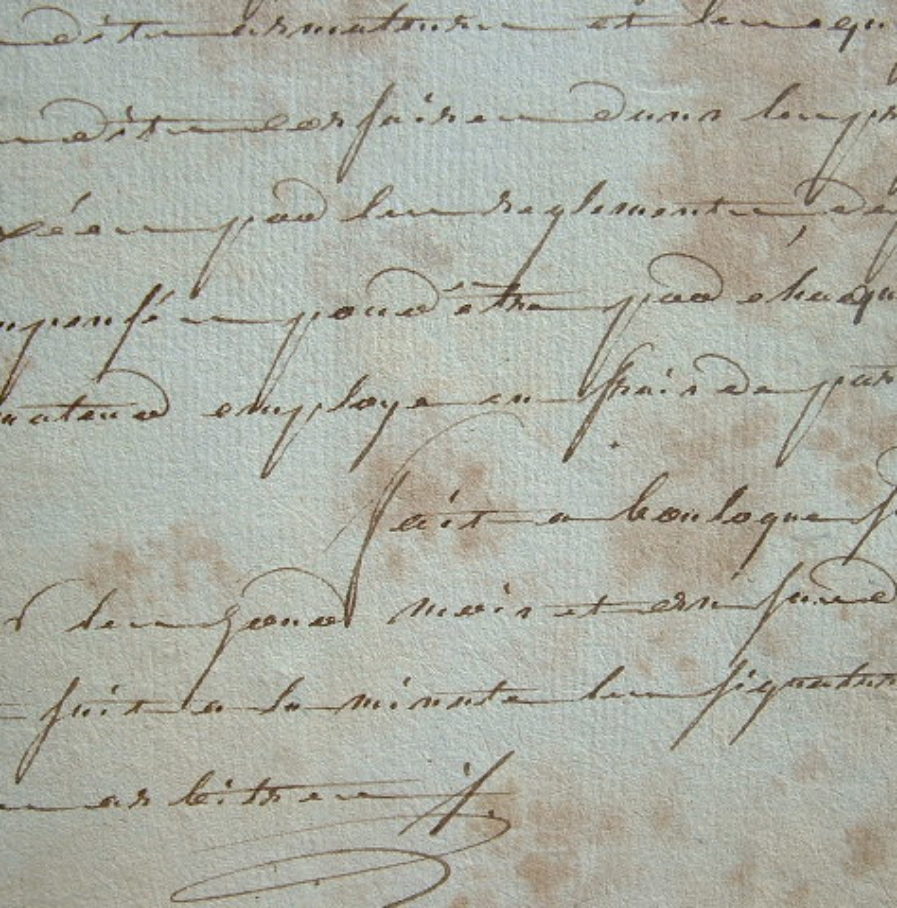 dits armateurs et les equ
dits corsaires dans les pr
xées par les reglements, de
mpensés pour être par chaque
mateur employe en frais de par
fait a boulogne s
les jour mois et an sur
fait a la minute les signature
arbitres